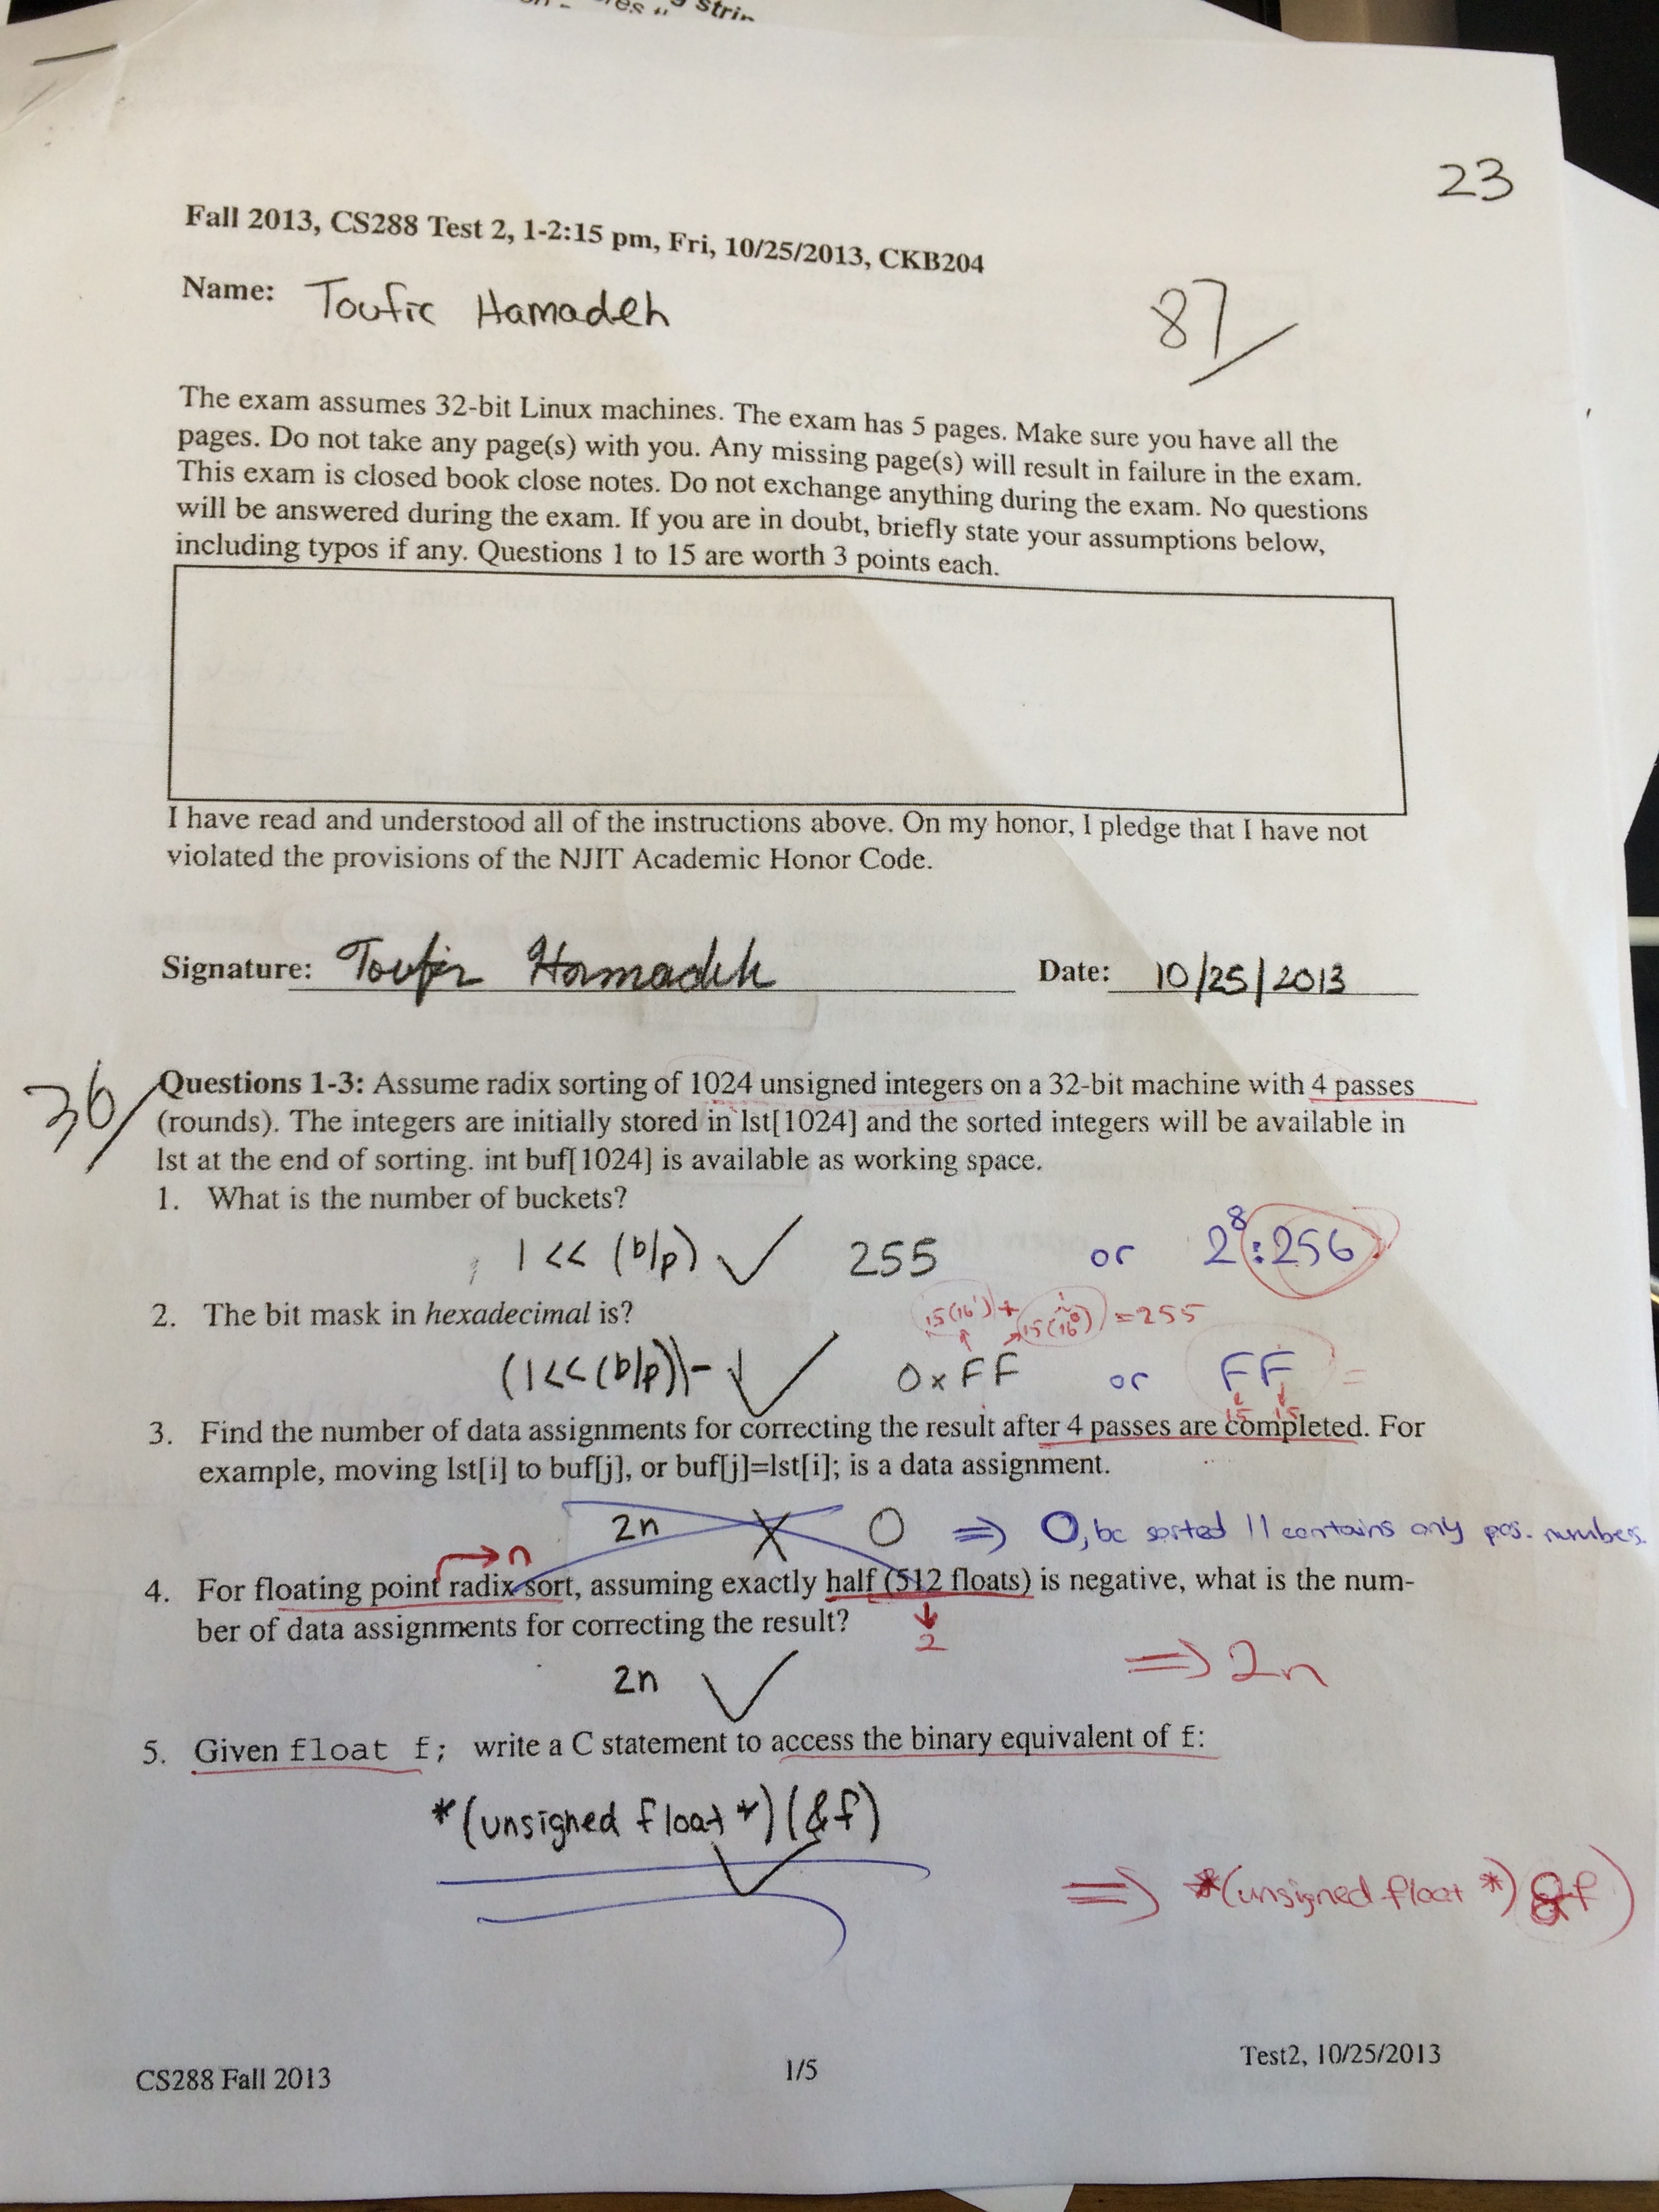 23
Fall 2013, CS288 Test 2, 1-2:15 pm, Fri, 10/25/2013, CKB204
Name: Toufic Hamadeh
87
The exam assumes 32-bit Linux machines. The exam has 5 pages. Make sure you have all the
pages. Do not take any page(s) with you. Any missing page(s) will result in failure in the exam.
This exam is closed book close notes. Do not exchange anything during the exam. No questions
will be answered during the exam. If you are in doubt, briefly state your assumptions below,
including typos if any. Questions 1 to 15 are worth 3 points each.
I have read and understood all of the instructions above. On my honor, I pledge that I have not
violated the provisions of the NJIT Academic Honor Code.
Signature: Toufic Hamadeh Date: 10/25/2013
36
Questions 1-3: Assume radix sorting of 1024 unsigned integers on a 32-bit machine with 4 passes
(rounds). The integers are initially stored in lst[1024] and the sorted integers will be available in
lst at the end of sorting. int buf[1024] is available as working space.
1. What is the number of buckets?
1 << (b/p) ✓ 255 or 2^8:256
2. The bit mask in hexadecimal is?
15(16^1) + 15(16^0) = 255
(1<<(b/p))-1 ✓ 0xFF or FF =
15 15
3. Find the number of data assignments for correcting the result after 4 passes are completed. For
example, moving lst[i] to buf[j], or buf[j]=lst[i]; is a data assignment.
2n X 0 ⇒ 0, bc sorted || contains any pos. numbers.
→ n
4. For floating point radix sort, assuming exactly half (512 floats) is negative, what is the num-
ber of data assignments for correcting the result?
↓ 2
2n ✓ ⇒ 2n
5. Given float f; write a C statement to access the binary equivalent of f:
*(unsigned float *)(&f) ✓
⇒ *(unsigned float *) &f)
CS288 Fall 2013 1/5 Test2, 10/25/2013